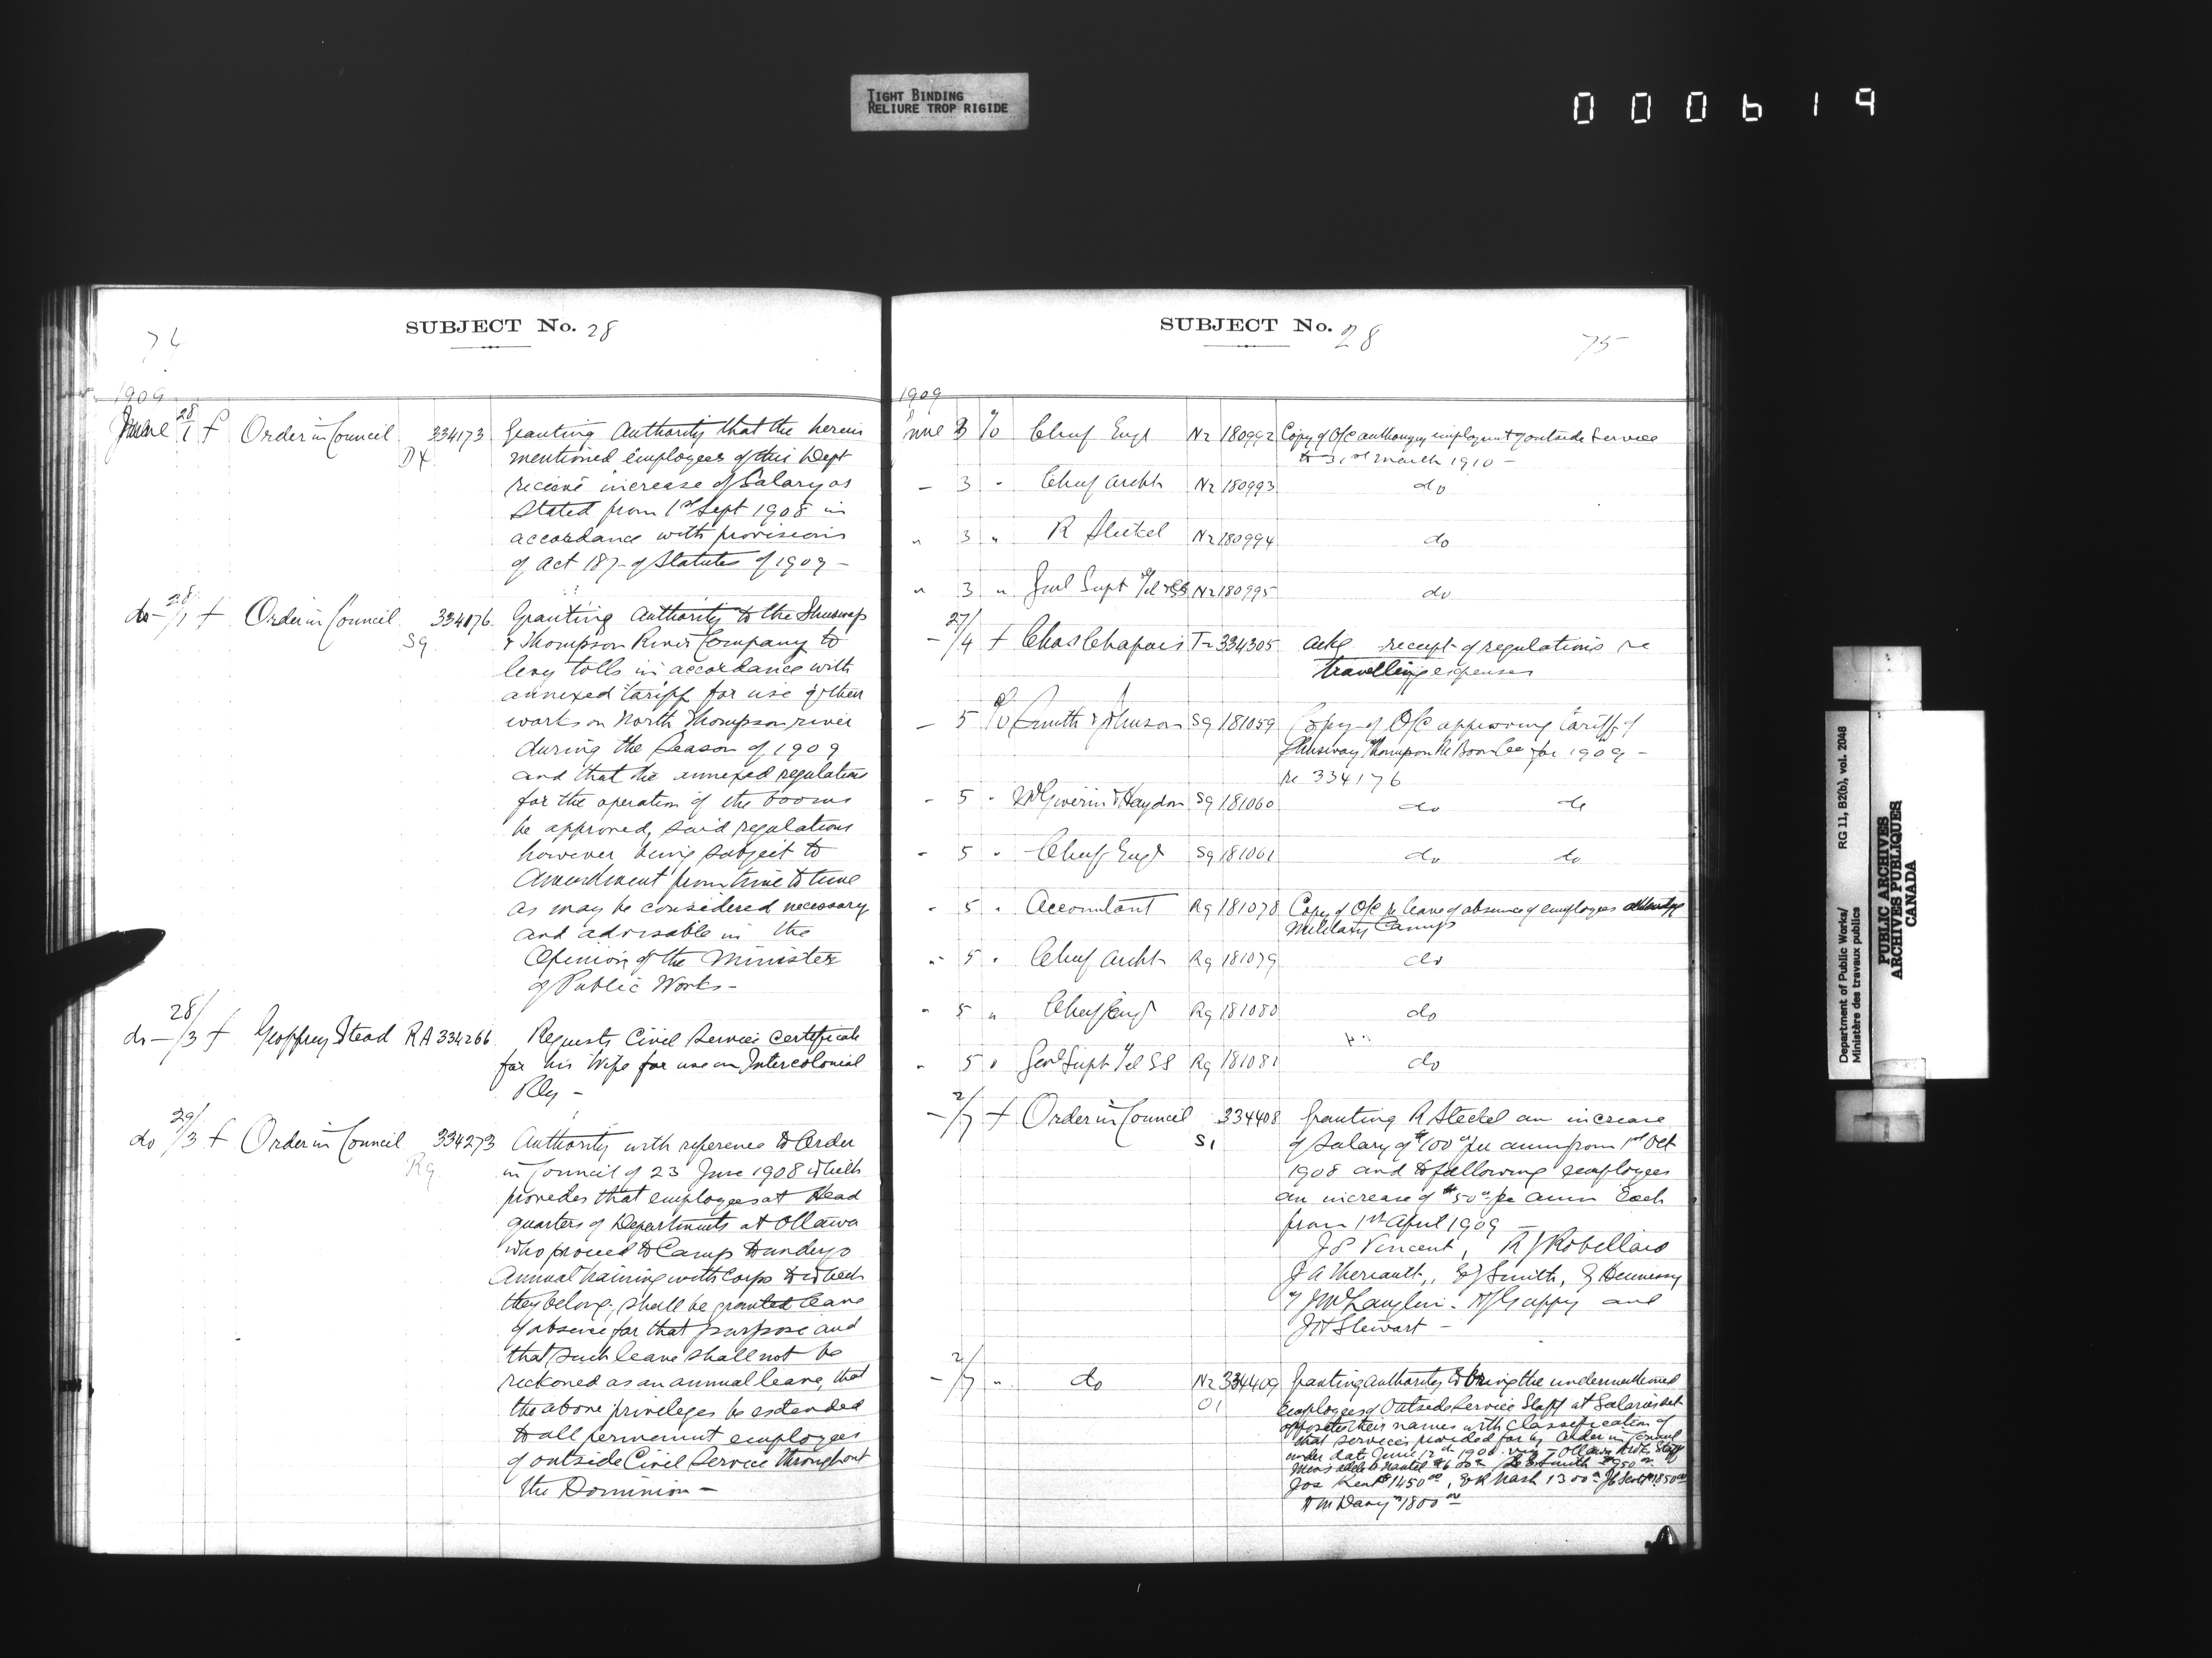 TIGHT BINDING
RELIURE TROP RIGIDE
000619
SUBJECT No. 28
74
1909
June 28/1 f Order in Council 334173 Granting Authority that the herein
Dx mentioned employees of this Dept
receive increase of Salary as
stated from 1st Sept 1908 in
accordance with provisions
of Act 187 of Statutes of 1909 -
do - 28/1 f Order in Council 334176 Granting Authority to the Shuswap
Sg & Thompson River Company to
levy tolls in accordance with
annexed tariff for use of their
works on North Thompson river
during the Season of 1909
and that the annexed regulations
for the operation of the booms
be approved, said regulations
however being subject to
Amendment from time to time
as may be considered necessary
and advisable in the
Opinion of the Minister
of Public Works -
do - 28/3 f Geoffrey Stead RA 334266 Requests Civil Service Certificate
for his Wife for use on Intercolonial
Rly -
do 29/3 f Order in Council 334273 Authority with reference to Order
Rg in Council of 23 June 1908 which
provides that employees at Head
quarters of Departments at Ottawa
who proceed to Camp to undergo
Annual training with Corps to which
they belong, shall be granted leave
of absence for that purpose and
that such leave shall not be
reckoned as an annual leave, that
the above privileges be extended
to all permanent employees
of outside Civil Service throughout
the Dominion -
SUBJECT No. 28
75
1909
June 3 % Chief Engr Nz 180992 Copy of O/C authorizing employmt of outside Service
to 31st March 1910 -
- 3 " Chief Archt Nz 180993 do
" 3 " R Steckel Nz 180994 do
" 3 " Genl Supt Tel SS Nz 180995 do
- 27/4 f Chas Chapais T- 334305 Ackg receipt of regulations re
travelling expenses
- 5 % Smith & Johnson Sg 181059 Copy of O/C approving Tariff of
Shusway Thompson Rr Boom Co for 1909 -
re 334176
- 5 " McGiverin & Haydon Sg 181060 do do
- 5 " Chief Engr Sg 181061 do do
- 5 " Accountant Rg 181078 Copy of O/C re leave of absence of employees attending
Military Camps
" 5 " Chief Archt Rg 181079 do
" 5 " Chief Engr Rg 181080 do
" 5 " Genl Supt Tel SS Rg 181081 do
- 2/7 f Order in Council 334408 Granting R Steckel an increase
S1 of Salary of $100 per annum from 1st Oct
1908 and to following employees
an increase of $50 per annum Each
from 1st April 1909 -
J P Vincent, R J Robillard
J A Theriault, E J Smith, J Hennessy
J McLaughlin, Guppy and
J H Stewart -
- 2/7 " do Nz 334409 Granting authority to bring the undermentioned
O1 employees of Outside Service Staff at Salaries set
opposite their names with classification of
that services provided for by Order in Council
under date June 12th 1908 viz - Ottawa
Smith $950
Jos Kent $1450, E R Nash 1300 Scott 1850
Davy $1800
Department of Public Works/ RG 11, B2(b), vol. 2048
Ministère des travaux publics
PUBLIC ARCHIVES
ARCHIVES PUBLIQUES
CANADA